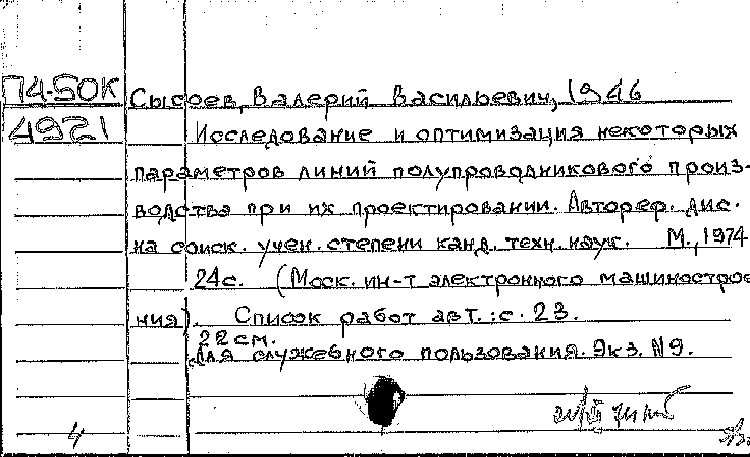 П4-50К Сысоев, Валерий Васильевич, 1946
4921 Исследование и оптимизация некоторых
параметров линий полупроводникового произ-
водства при их проектировании. Автореф. дис.
на соиск. учен. степени канд. техн. наук. М., 1974
24с. (Моск. ин-т электронного машинострое
ния). Список работ авт.: с. 23.
22см.
Для служебного пользования. Экз. №9.